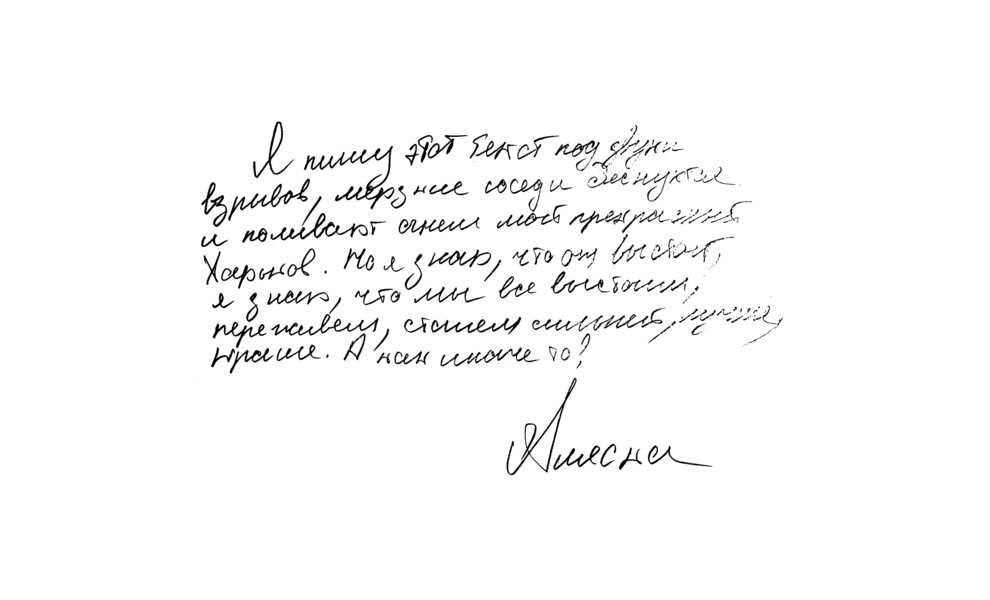 Я пишу этот текст под звуки
взрывов, мерзкие соседи беснуются
и поливают огнем мой прекрасный
Харьков. Но я знаю, что он выстоит,
я знаю, что мы все выстоим,
переживем, станем сильней, лучше,
краше. А как иначе то?